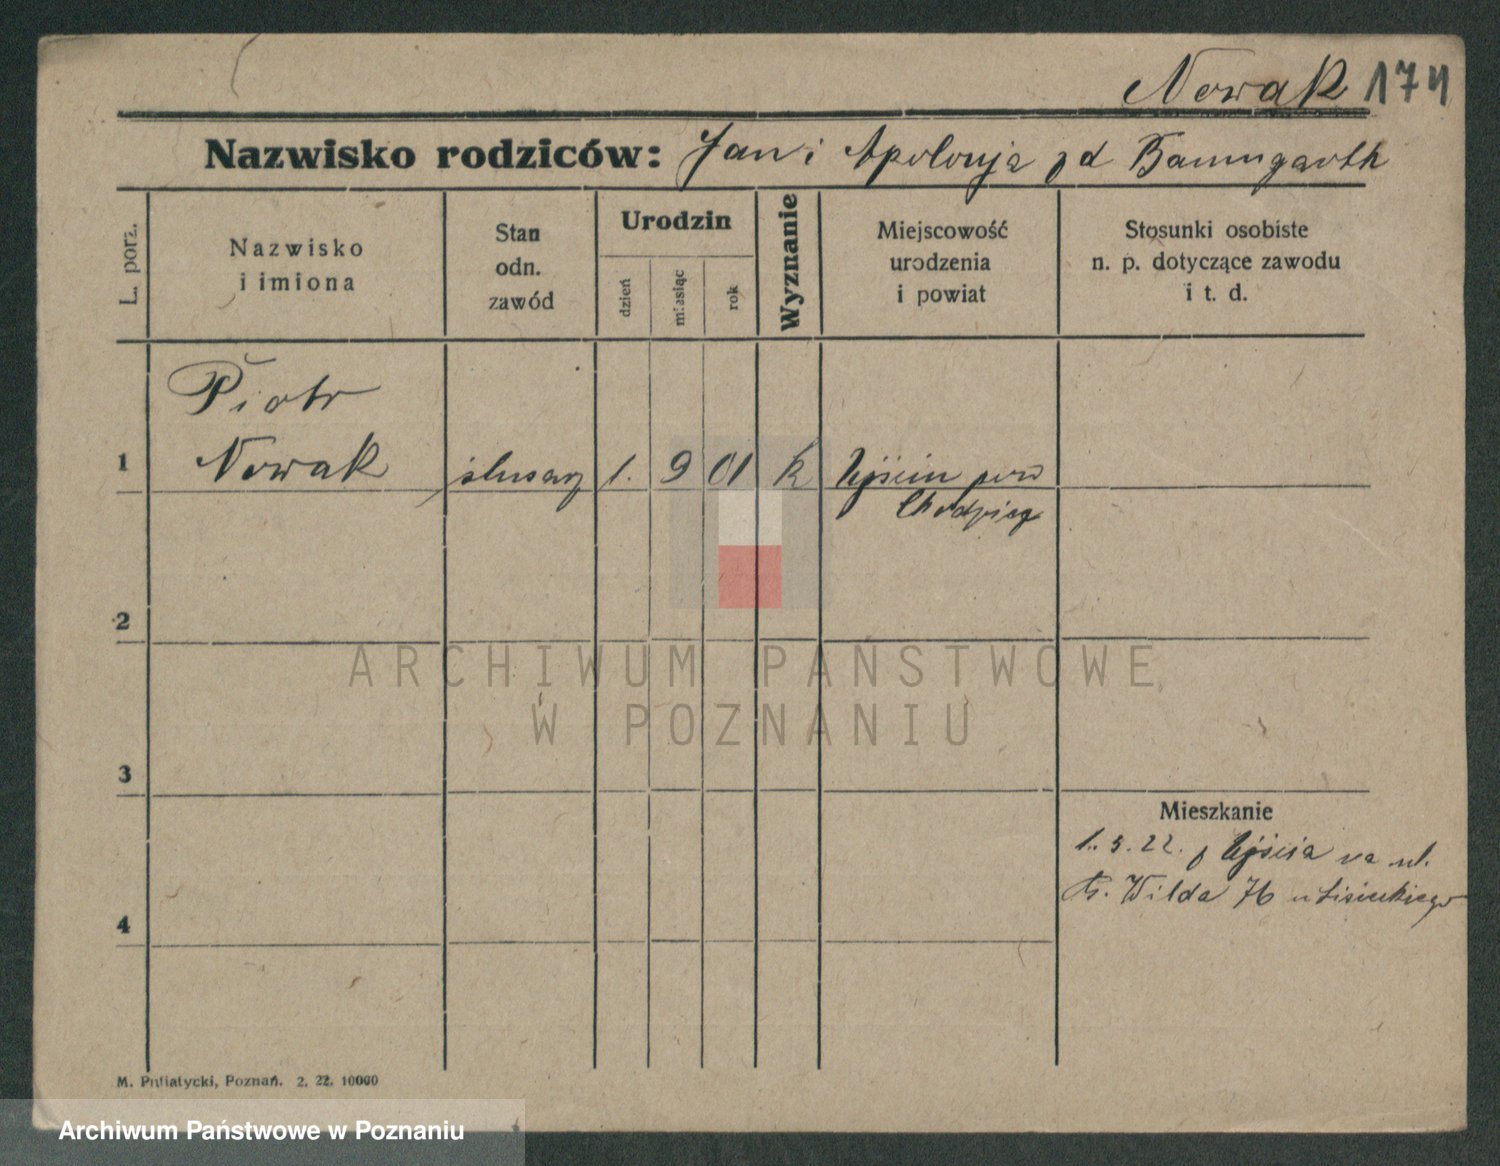 Nowak 174
Nazwisko rodziców: Jan i Apolonja zd Baumgarth
L. porz.
Nazwisko
i imiona
Stan
odn.
zawód
Urodzin
dzień
miesiąc
rok
Wyznanie
Miejscowość
urodzenia
i powiat
Stosunki osobiste
n. p. dotyczące zawodu
i t. d.
Piotr
1 Nowak ślusarz 1. 9 01 k Ujście pow
Chodzież
2
ARCHIWUM PAŃSTWOWE
W POZNANIU
3
Mieszkanie
1. 3. 22. z Ujścia na ul.
G. Wilda 76 u Lisieckiego
4
M. Putiatycki, Poznań. 2. 22. 10000
Archiwum Państwowe w Poznaniu